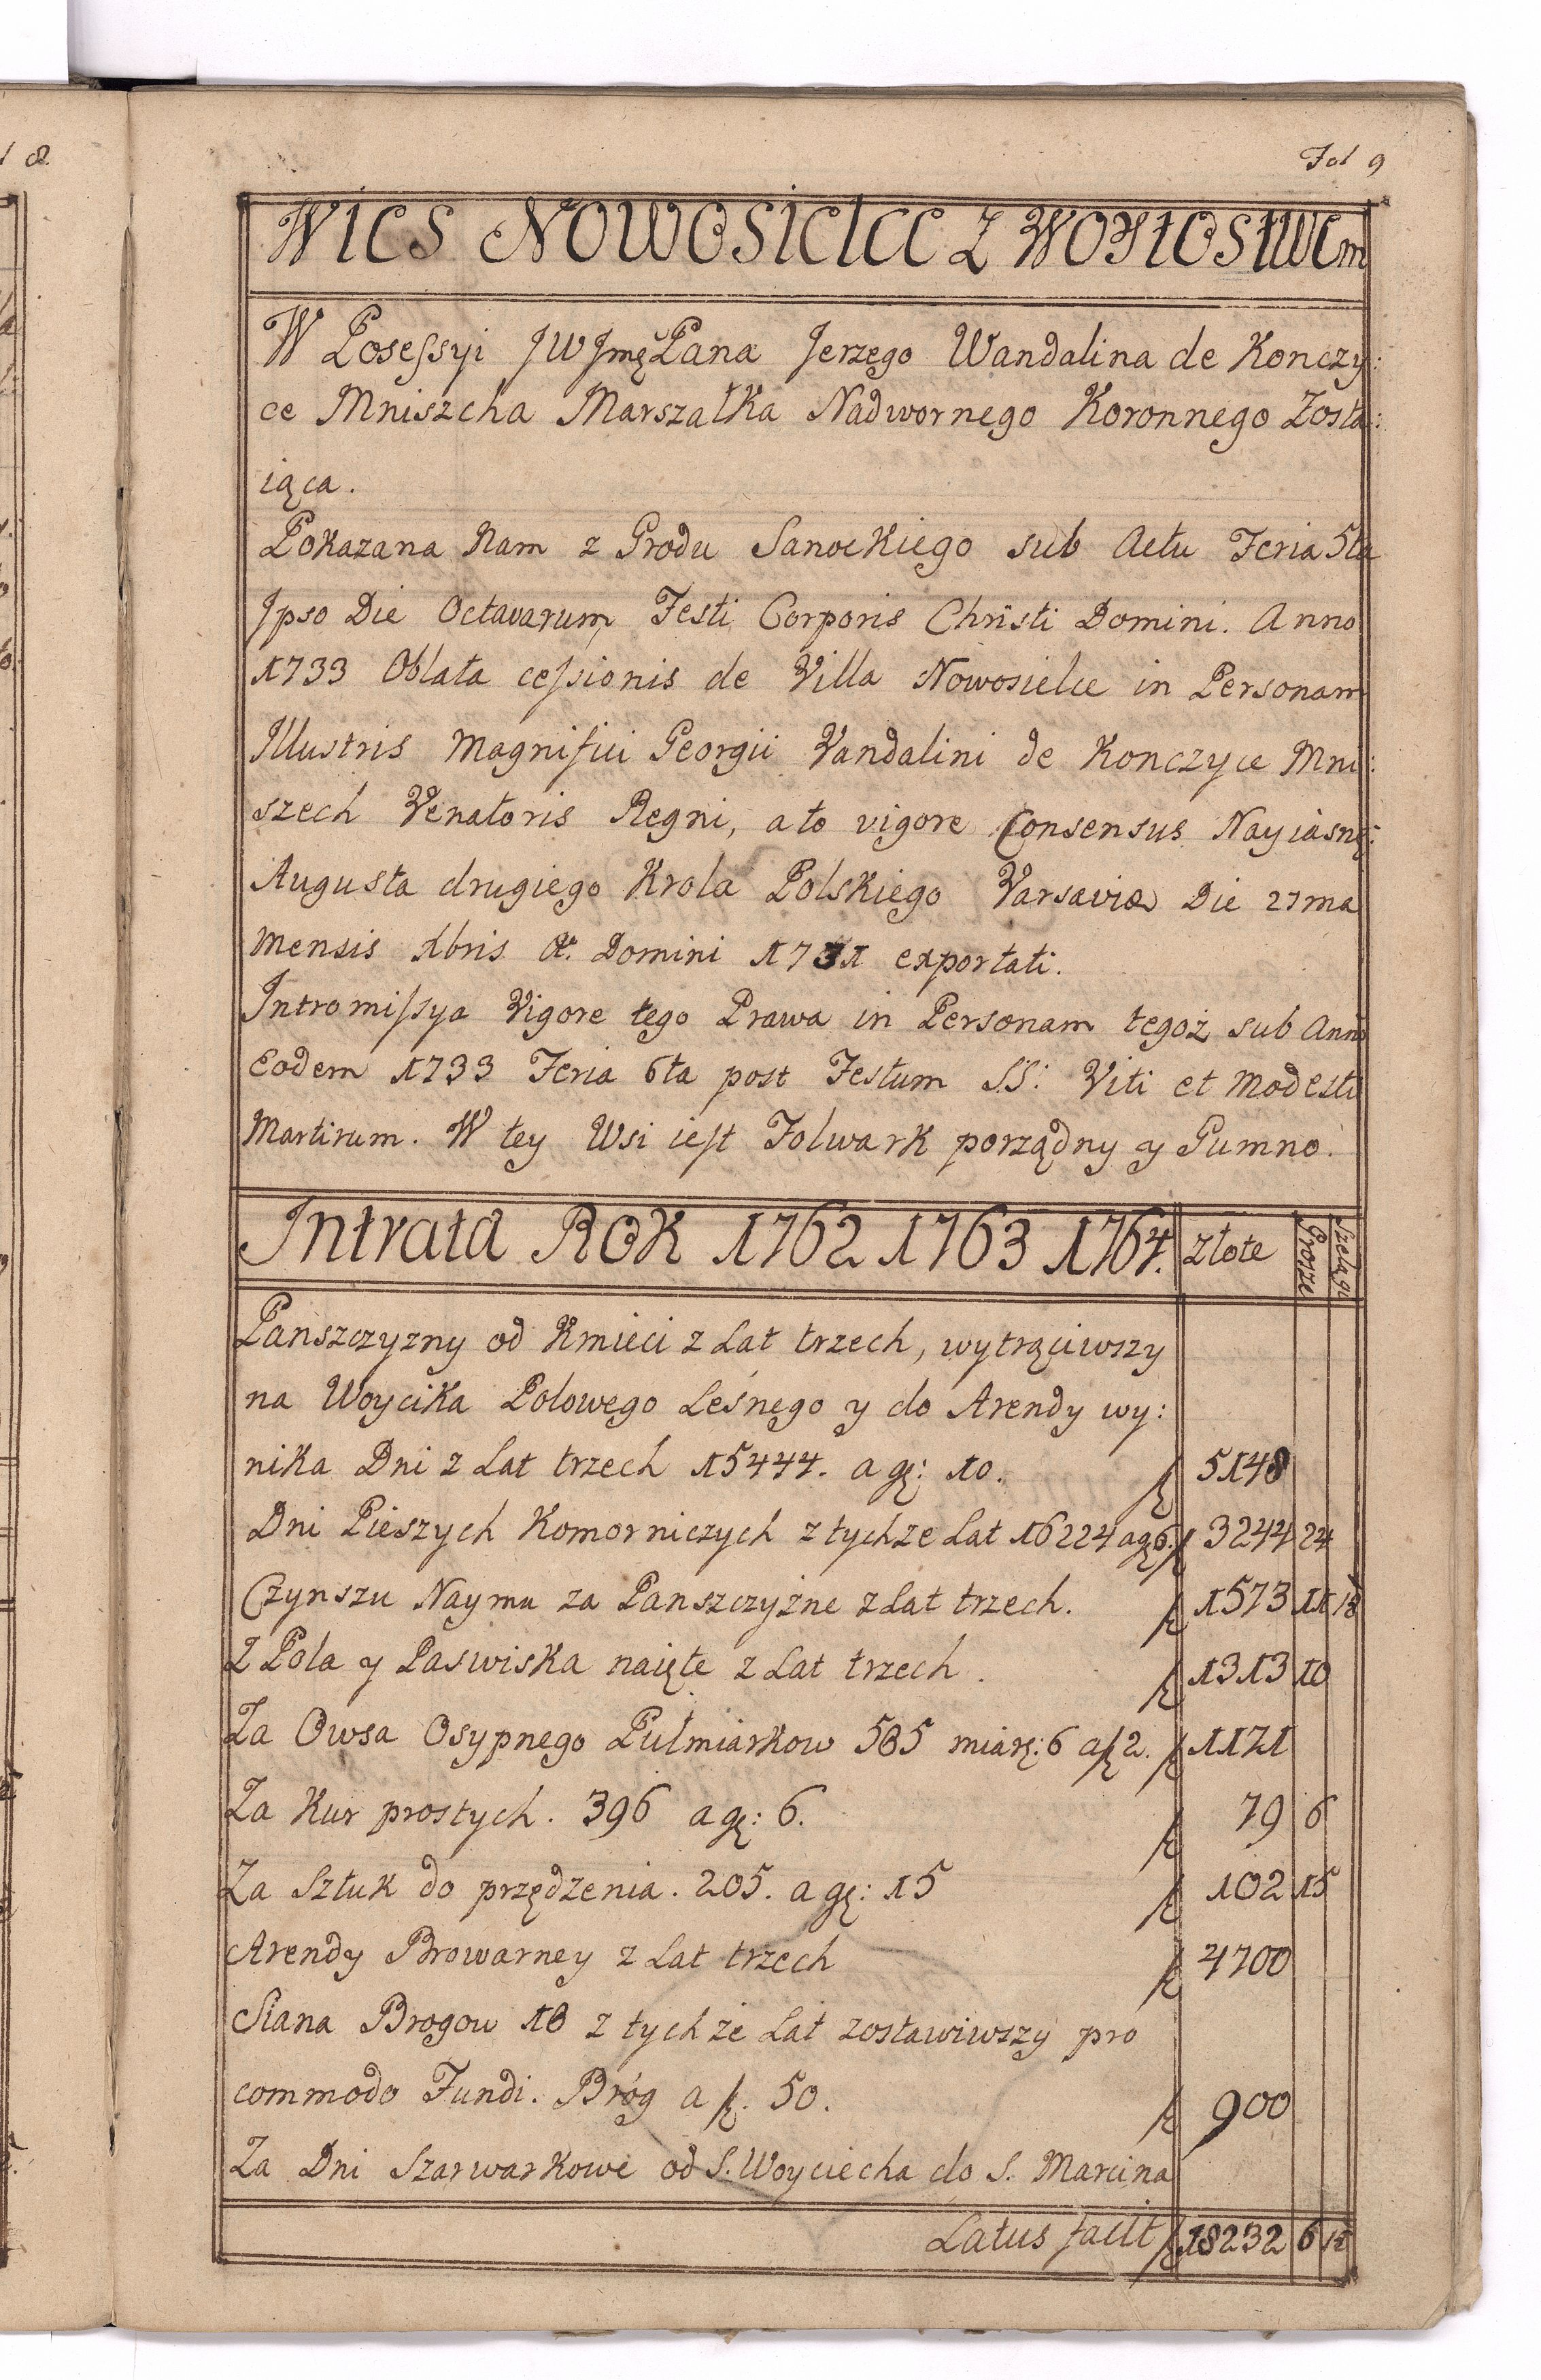 Fol 9
Wies Nowosielce z Woytostwem
W Posessyi JW Jmę Pana Jerzego Wandalina de Konczy:
ce Mniszcha Marszałka Nadwornego Koronnego Zosta:
iąca.
Pokazana Nam z Grodu Sanockiego sub Actu Feria 5ta
Ipso Die Octavarum Festi Corporis Christi Domini. Anno
1733 Oblata cessionis de Villa Nowosielce in Personam
Illustris Magnifici Georgii Vandalini de Konczyce Mni:
szech Venatoris Regni, a to vigore Consensus Nayiasnę:
Augusta drugiego Krola Polskiego Varsaviæ Die 27ma
Mensis Xbris A. Domini 1731 exportati.
Intromissya Vigore tego Prawa in Personam tegoż sub Anno
Eodem 1733 Feria 6ta post Festum SS: Viti et Modesti
Martirum. W tey Wsi iest Folwark porządny y Gumno.
Intrata Rok 1762 1763 1764. złote Grosze Szelągi
Panszczyzny od Kmieci z Lat trzech, wytrąciwszy
na Woycika Polowego Leśnego y do Arendy wy:
nika Dni z Lat trzech 15444. a gę: 10. 5148
Dni Pieszych Komorniczych z tychze Lat 16224 a gę 6. 3244 24
Czynszu Naymu za Panszczyźne z Lat trzech. 1573 11 1/2
Z Pola y Paswiska naięte z Lat trzech. 1313 10
Za Owsa Osypnego Pułmiarkow 585 miarę: 6 a 2. 1171
Za Kur prostych. 396 a gę: 6. 79 6
Za Sztuk do przędzenia. 205. a gę: 15 102 15
Arendy Browarney z Lat trzech 4700
Siana Brogow 18 z tychże Lat zostawiwszy pro
commodo Fundi. Bróg a 50. 900
Za Dni Szarwarkowe od S. Woyciecha do S. Marcina
Latus facit 18232 6 1/2